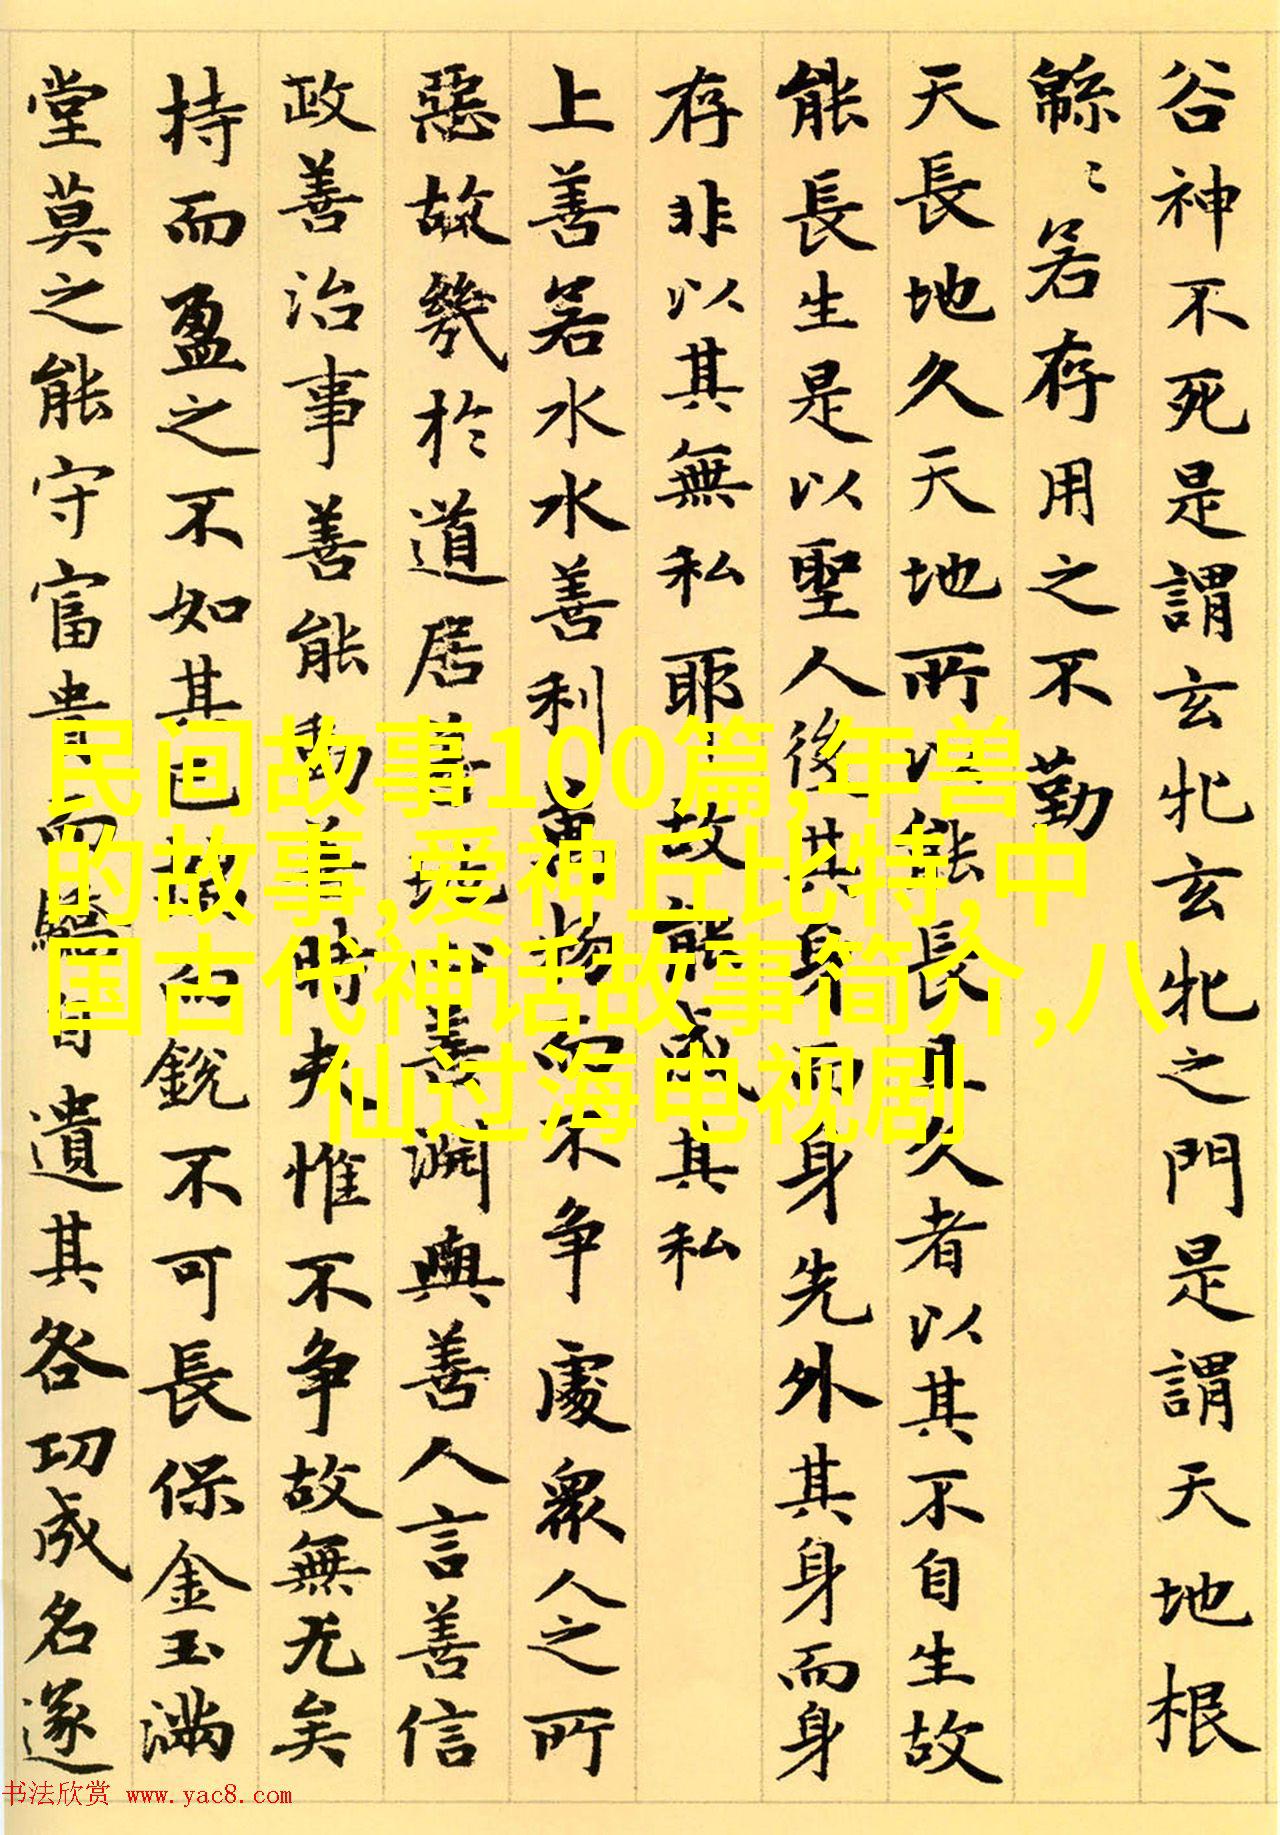 谷神不死是謂玄牝玄牝之門是謂天地根
緜〻若存用之不勤
天長地久天地所以能長且久者以其不自生故
能長生是以聖人後其身而身先外其身而身
存非以其無私耶故能成其私
上善若水水善利萬物而不争處衆人之所
惡故幾於道居善地心善渊與善人言善信
政善治事善能動善時夫惟不争故無尤矣
持而盈之不如其已揣而銳不可長保金玉滿
堂莫之能守富貴而驕自遺其咎功成名遂
民间故事100篇,年兽
的故事,爱神丘比特,中
国古代神话故事简介,八
仙过海电视剧
书法欣赏 www.yac8.com